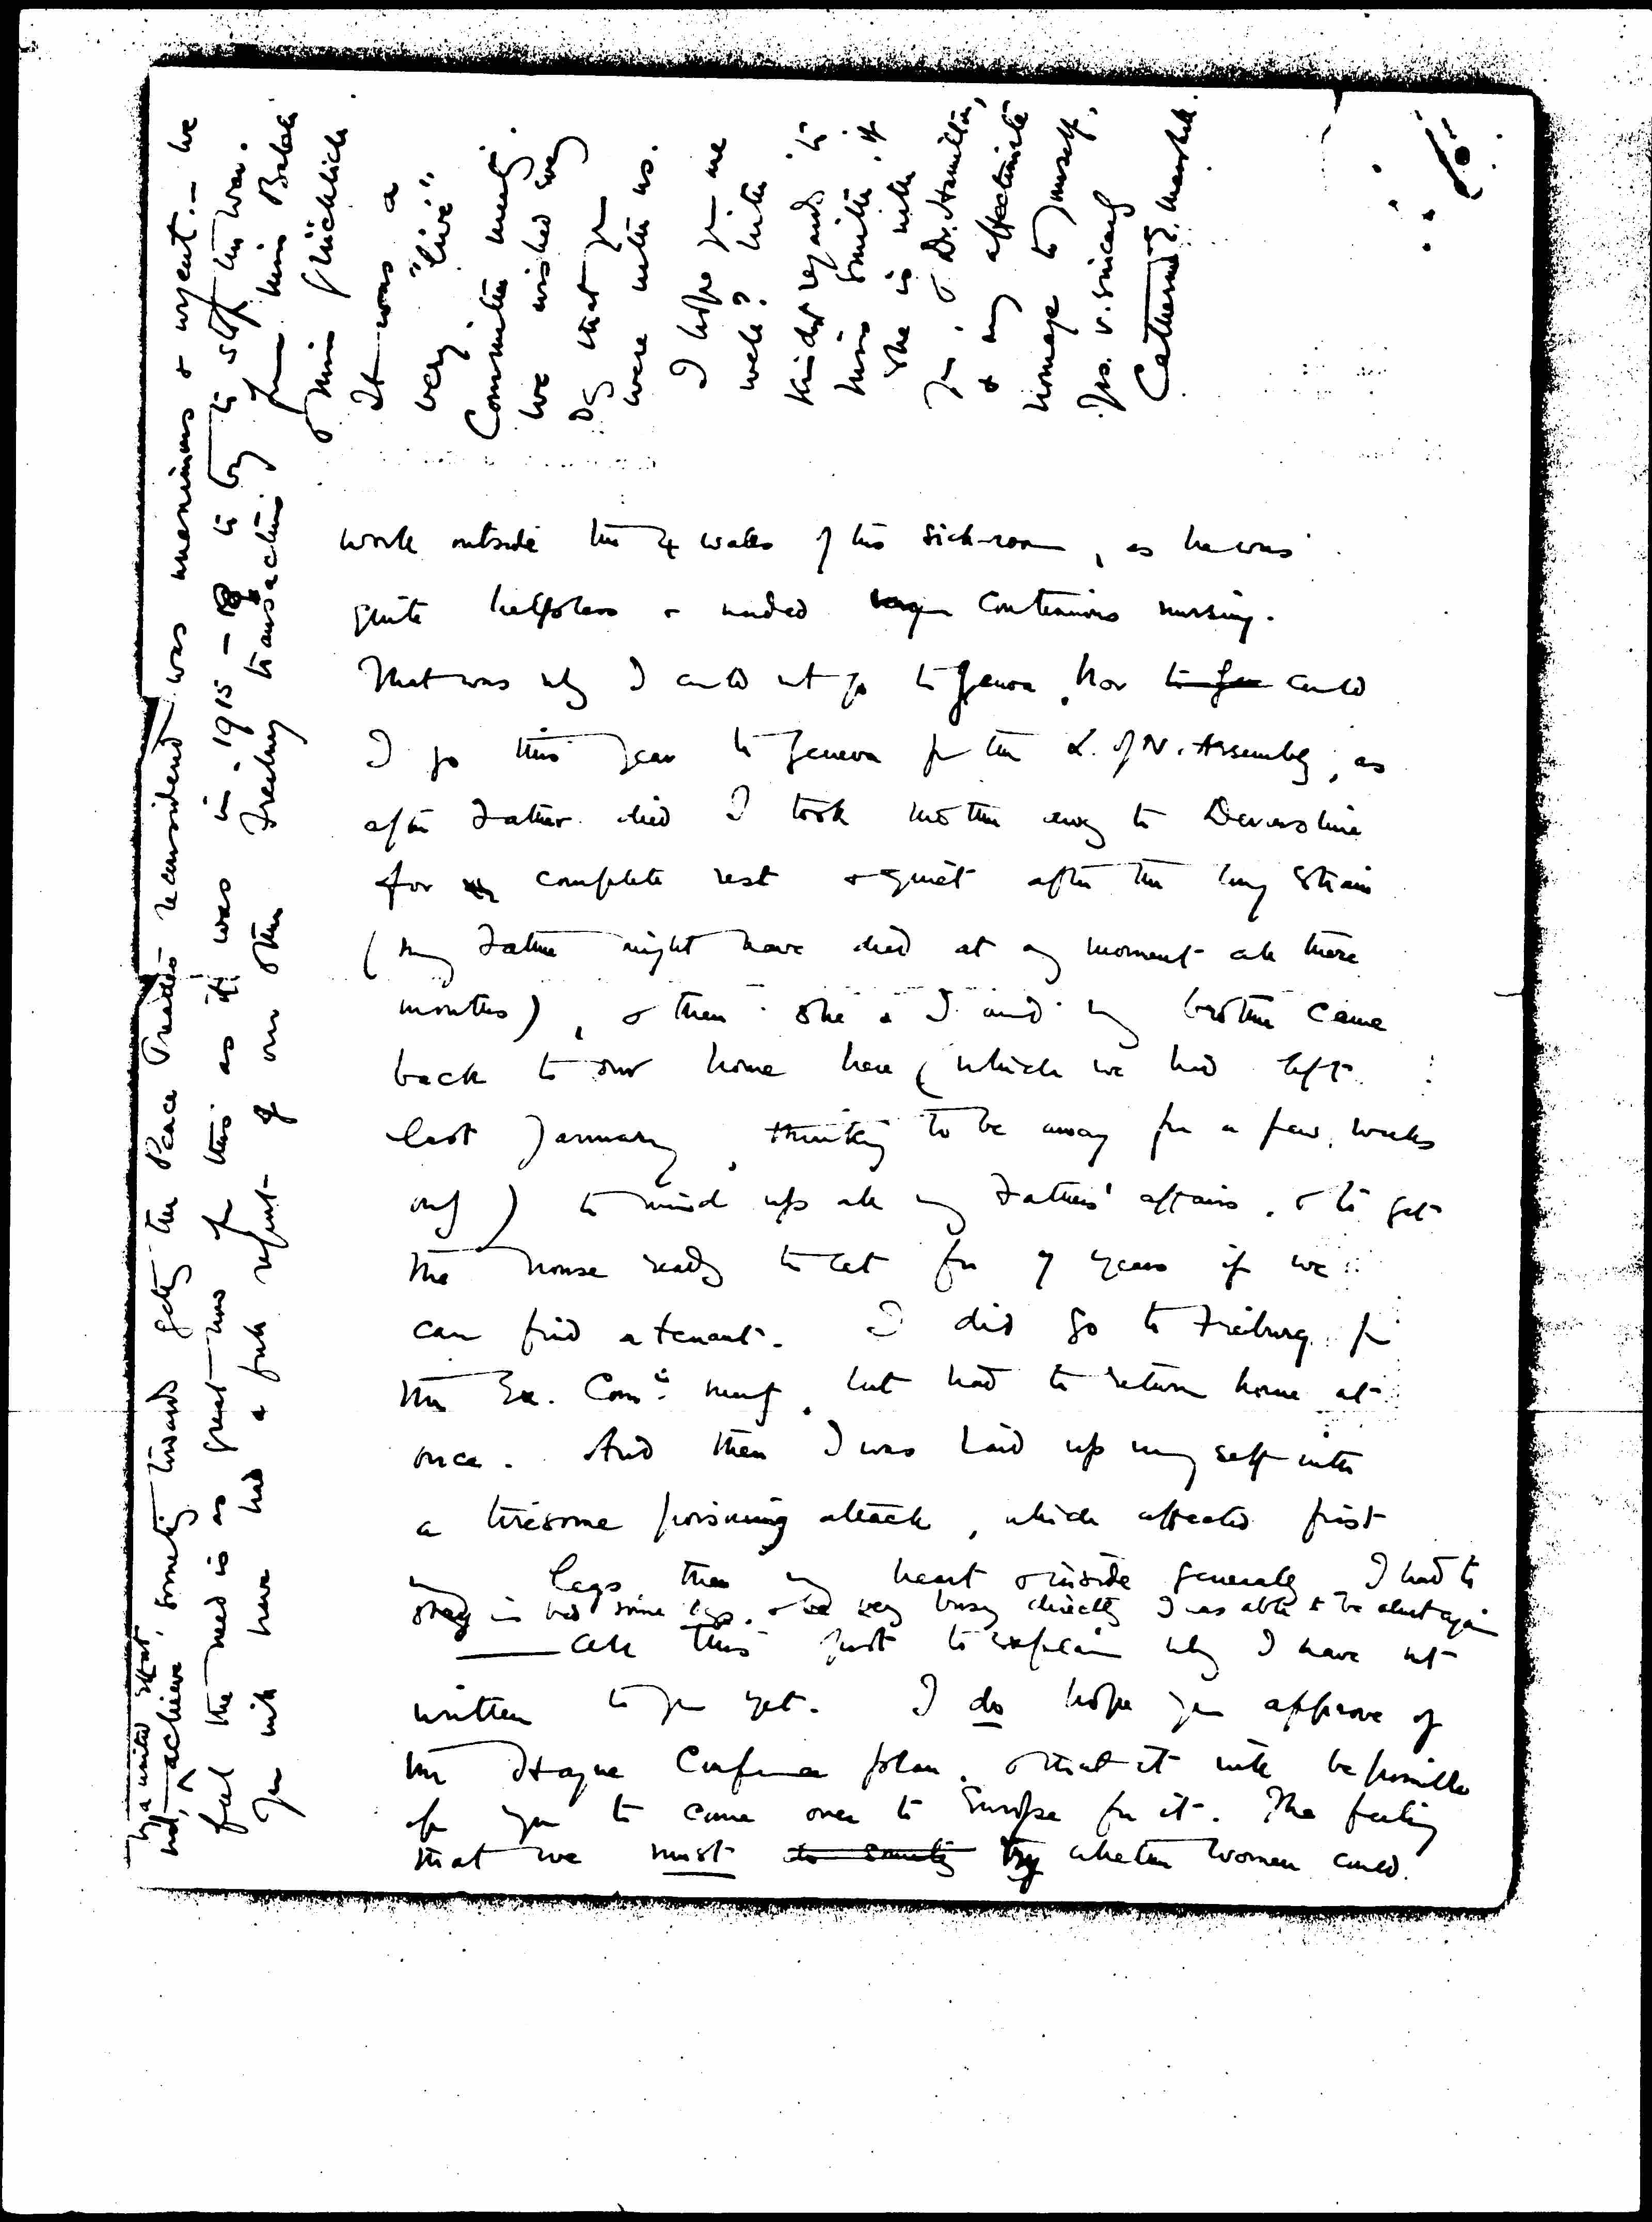 work outside the 4 walls of his sick-room, as he was
quite helpless & needed continuous nursing.
That was why I could not go to Genoa. Nor to Gen could
I go this year to Geneva for the L. of N. Assembly, as
after Father died I took Mother away to Devonshire
for complete rest & quiet after the long strain
(my Father might have died at any moment all these
months), & then she & I and my brother came
back to our home here (which we had left
last January, thinking to be away for a few weeks
only) to wind up all my Father's affairs, & to get
the house ready to let for 7 years if we
can find a tenant. I did go to Freiburg for
the Ex. Comee. meetg, but had to return home at
once. And then I was laid up myself with
a tiresome poisoning attack, which affected first
my legs, then my heart & inside generally. I had to
stay in bed some days, & was very busy directly I was able to be about again
All this just to explain why I have not
written to you yet. I do hope you approve of
the Hague Conference plan, & that it will be possible
for you to come over to Europe for it. The feeling
that we must do something try whether women could
not, by a united effort, achieve something towards getting the Peace Treaties reconsidered was unanimous & urgent. – We
feel the need is as great now for this as it was in 1915–18 to try to stop the war.
You will have had a full report of our other Freiburg transactions from Miss Balch
& Miss Glücklich
It was a
very "live"
Committee meeting.
We wished very
that you
were with us.
I hope you are
well? With
kindest regards to
Miss Smith, if
she is with
you, & Dr. Hamilton,
& my affectionate
homage to yourself,
Yrs. v. sincerely
Catherine E. Marshall.